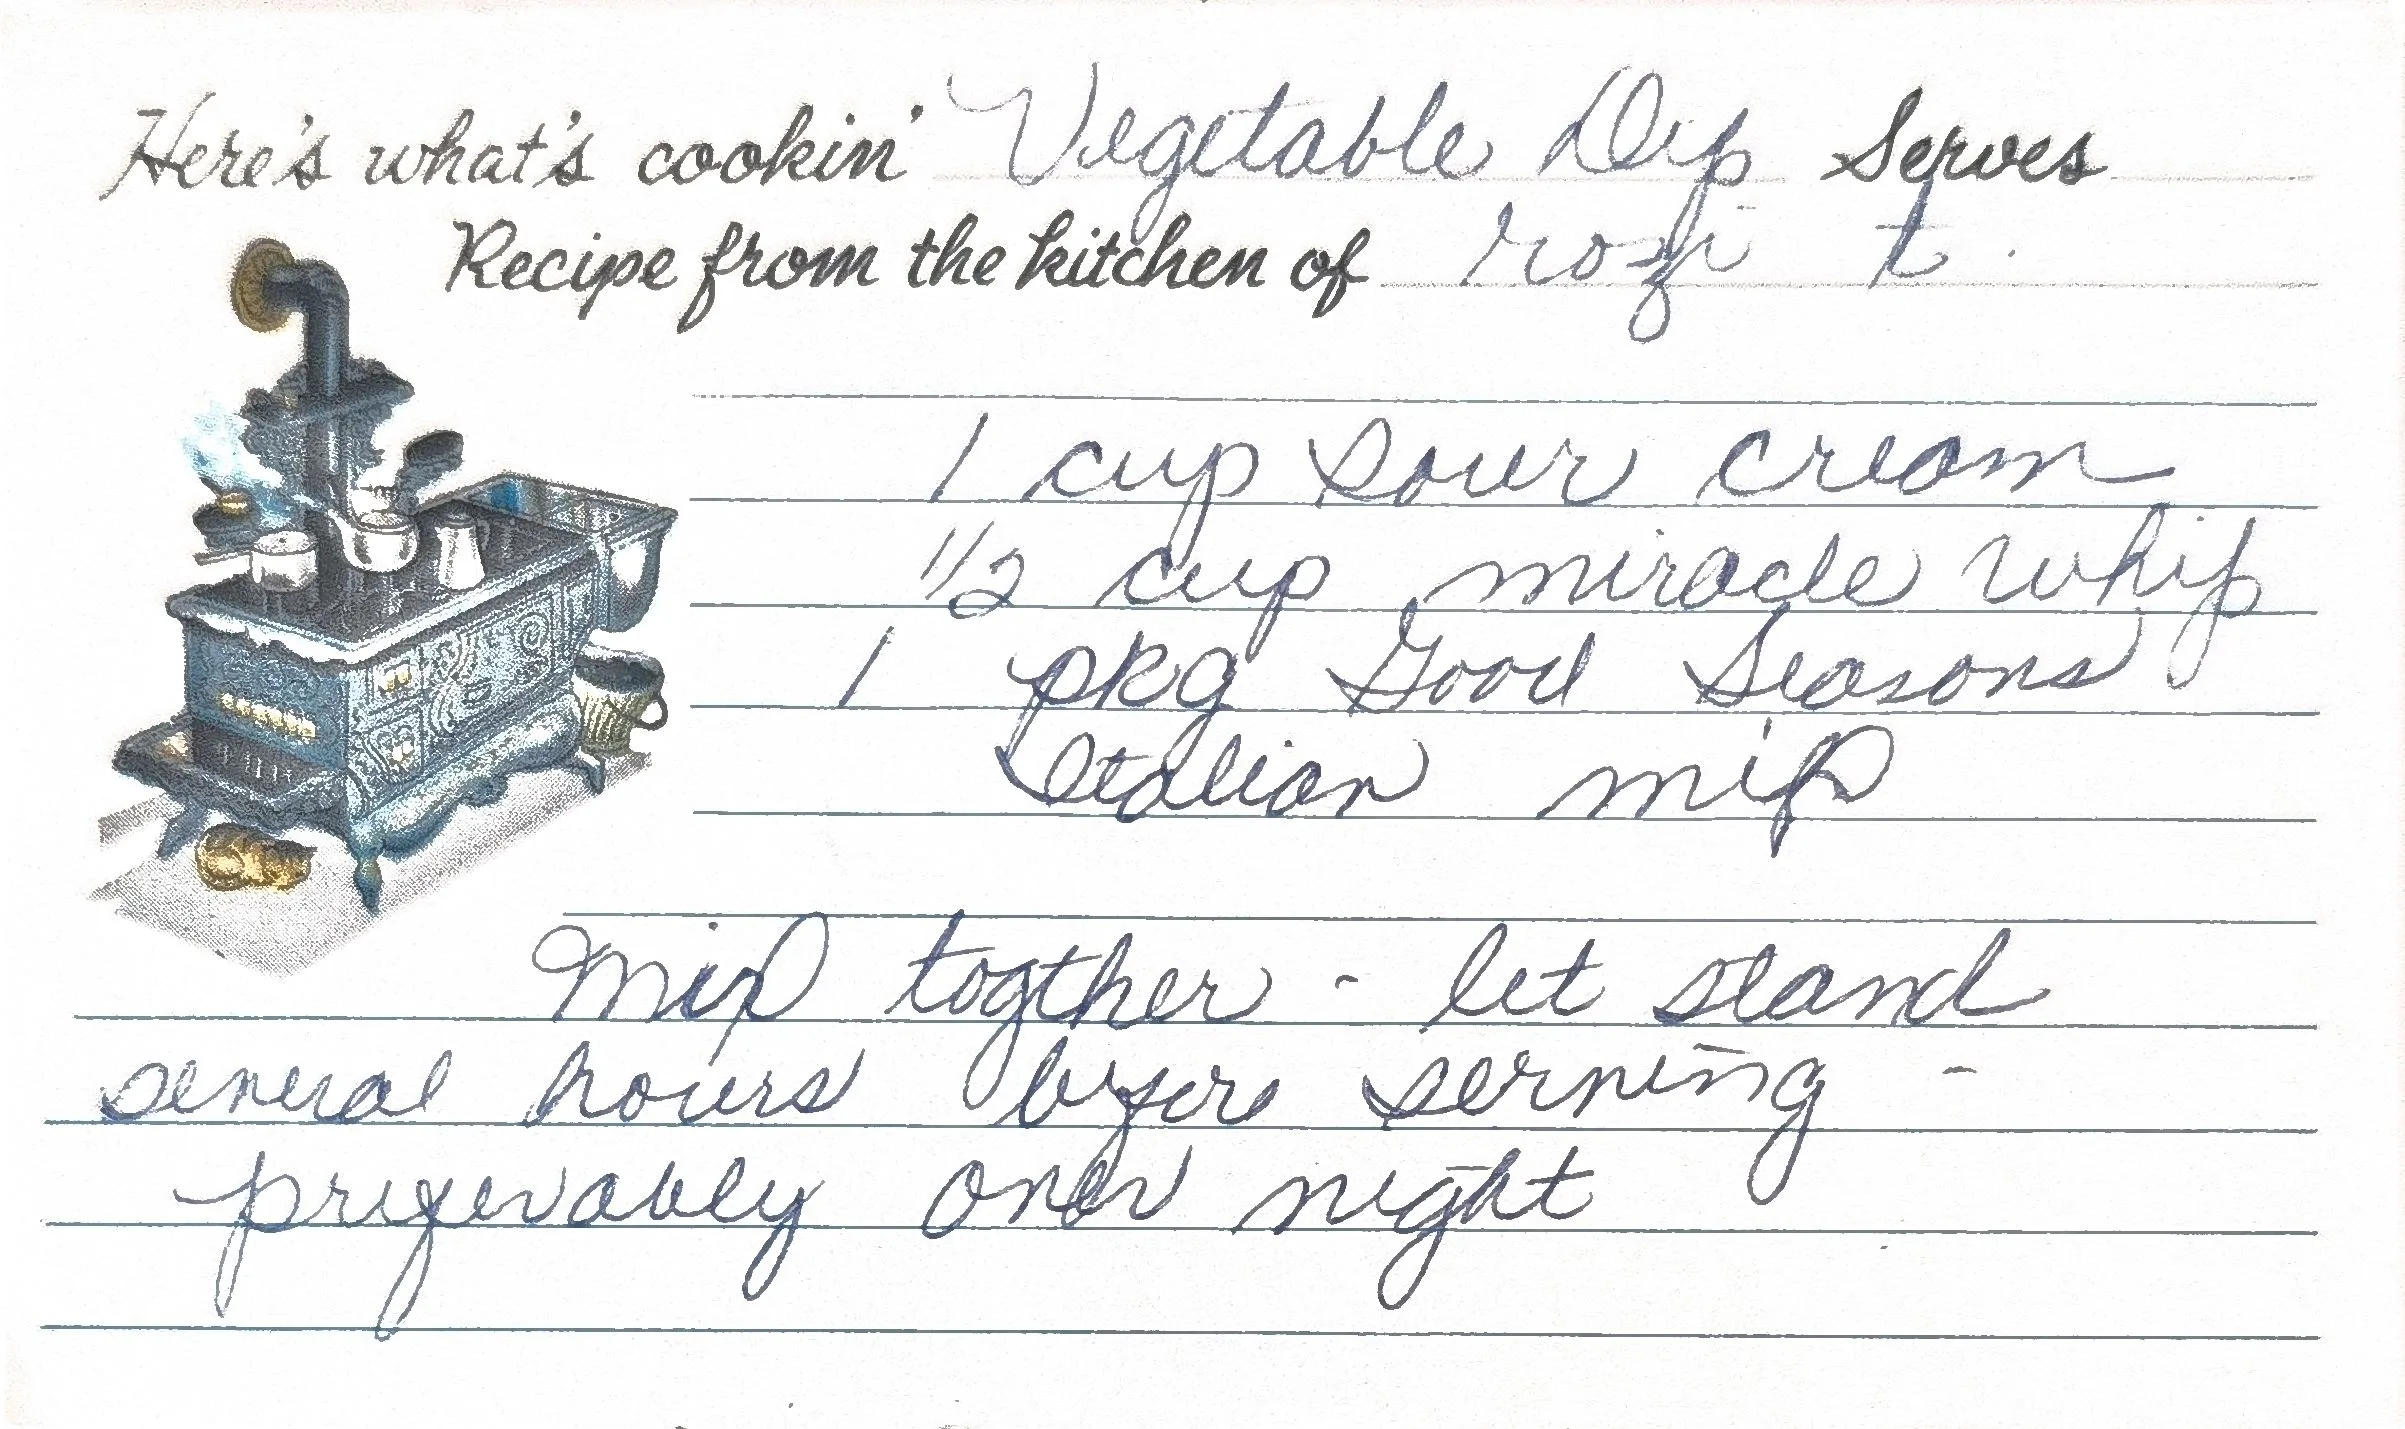 Here's what's cookin' Vegetable Dip Serves
Recipe from the kitchen of rozi t.
1 cup sour cream
1/2 cup miracle whip
1 pkg Good Seasons
Italian mix
Mix togther - let stand
several hours before serving -
preferably over night